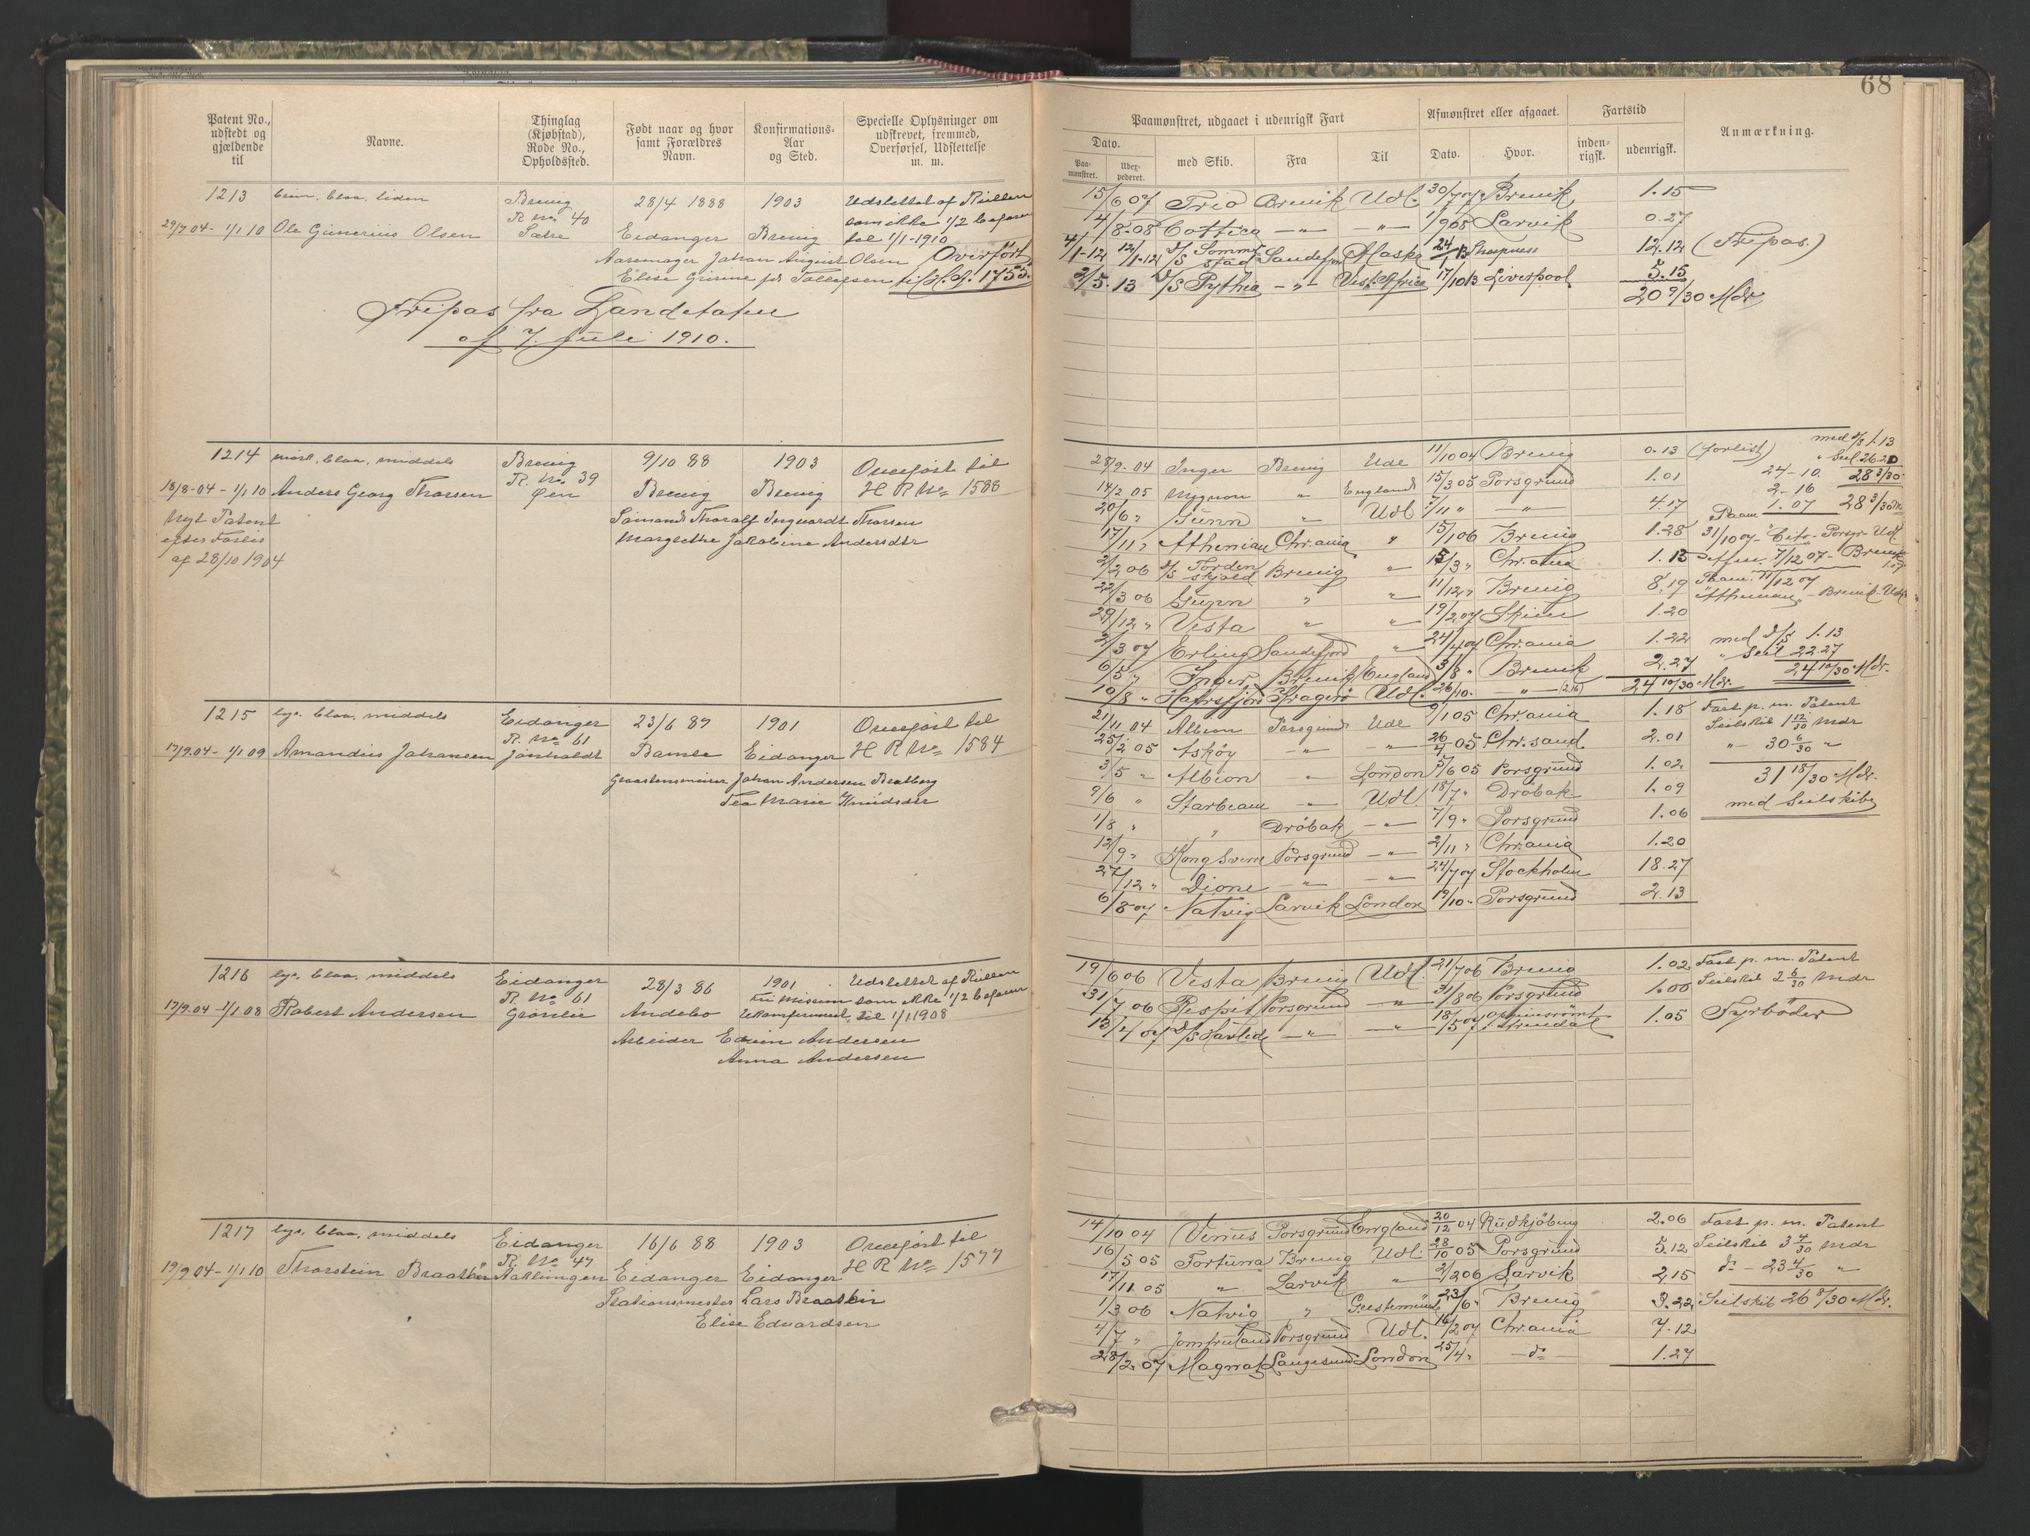 68
Patent No., udstedt og gjældende til
Navne.
Thinglag (Kjøbstad), Rode No., Opholdssted.
Født naar og hvor samt Forældres Navn.
Konfirmations- Aar og Sted.
Specielle Oplysninger om udskrevet, fremmed, Overførsel, Udslettelse m. m.
Paamønstret, udgaaet i udenrigsk Fart
Afmønstret eller afgaaet.
Fartstid
Anmærkning.
Dato.
Paa- mønstret.
Udex- pederet.
med Skib.
Fra
Til
Dato.
Hvor.
inden- rigsk.
udenrigsk.
1213 brun, blaa, liden Brevig 28/4 1888 1903 Udslettet af Rullen
R. No. 40 som ikke 1/2 befaren
29/7 04 - 1/1 10 Ole Gunerius Olsen Sætre Eidanger Brevig til 1/1-1910
Johan August Olsen Overført
Elise til H. R. 1753
Fripas fra Landetaten
af 7. Juli 1910.
15/6 07 Trio Brevik Udl. 30/7 07 Brevik 1.15
4/8 08 Cottica -"- -"- 1/9 08 Larvik 0.27
4/1-12 12/1-12 D/S Sandefj. Alaska 24/ 12.12 (Fripas.)
2/5. 13 D/S Pythia -"- Vest Africa 17/10 13 Liverpool 5.15
20 9/30 Mdr
1214 mørk, blaa, middels Brevig 9/10 88 1903 Overført til
R. No 39
18/8-04 - 1/1 10 Anders Georg Thorsen Øen Brevig Brevig H R No= 1588
Nyt Patent Sømand Thoralf Ingvardt Thorsen
efter Forlis Margrethe Jakobine Andersdtr
af 28/10 1904
28/9. 04 Inger Brevig Udl 11/10 04 Brevig 0.13 (forlist) med D/S 1.13
" Seil 26.20
14/2 05 Mygnon " England 15/3 05 Porsgrund 1.01 24-10. 28 3/30
2-16
20/6 " Gunn " Udl 7/11 " -"- 4.17 1.07 28 3/30
17/11 " Athenian Chr.ania " 15/1 06 Brevig 1.28 31/10 07 - Porsgr- Udl
2/2 06 D/S Tordenskjold Brevig " 15/3 " Chr.ania 1.13 Afm. 7/12 07 - Brevik
22/3 06 Gunn " " 11/12 " Brevig 8.19 Paam. 11/12 07
Athenian - Brevik - Udl
29/12 " Vesta " " 19/2 07 Skien 1.20
2/3 07 Erling Sandefjord " 24/4 07 Chr.ania 1.22 med D/S 1.13
6/5 " Inger Brevik England 3/8 " Brevik 2.27 " Seil 22.27
10/8 " Hafrsfjord Kragerø Udl. 26/10 - -"- (2.16) 24 10/30 Mdr 24 10/30 Mdr.
1215 lys, blaa, middels Eidanger 23/6 87 1901 Overført til
R. No 61
17/9.04 - 1/1 09 Amandius Johansen Jønholdt Bamle Eidanger H R No= 1584
Johan Andersen Bratberg
Tea Marie Knudsdtr
21/11 04 Albion Porsgrund Udl 9/1 05 Chr.ania 1.18 Fart p. m. Patent
25/2 05 Askøy -"- -"- 26/4 05 Chr.sand 2.01 Seilskib 1 12/30 Mdr
-"- 30 6/30 "
3/5 " Albion " London 5/6 05 Porsgrund 1.02 31 18/30 Mdr.
9/6 " Starbeam -"- Udl 18/7 " Drøbak 1.09 med Seilskibe
1/8 " " Drøbak -"- 7/9 " Porsgrund 1.06
12/9 " Kong Sverre Porsgrund -"- 2/11 " Chr.ania 1.20
27/12 " Dione -"- -"- 24/7 07 Stockholm 18.27
6/8 07 Natvig Larvik London 19/10 - Porsgrund 2.13
1216 lys, blaa, middels Eidanger 28/3 86 1901 Udslettet af Rullen
R. No 61 som ikke 1/2 befaren
17/9.04 - 1/1 08 Robert Andersen Grønlie Andebo til 1/1 1908
Arbeider Edvin Andersen
Anna Andersen
19/6 06 Vesta Brevig Udl 21/7 06 Brevig 1.02 Fart p. m. Patent
31/7 06 Respit Porsgrund -"- 31/8 06 Porsgrund 1.00 Seilskib 2 6/30 Mdr
13/4 07 D/S -"- -"- 18/5 07 1.05 Fyrbøder
1217 lys, blaa, middels Eidanger 16/6 88 1903 Overført til
R. No 47
19/9 04 - 1/1 10 Thorstein Braaten Naklungen Eidanger Eidanger H R No= 1577
Stationsmester Lars Braaten
Elise Edvardsen
14/10 04 Venus Porsgrund England 20/12 04 Rudkjøbing 2.06 Fart p. m. Patent
16/5 05 Fortuna Brevig Udl. 28/10 05 Porsgrund 5.12 Seilskib 3 4/30 Mdr
17/11 05 " Larvik " 2/2 06 Larvik 2.15 do - 23 4/30 "
1/3 06 Natvig " Geestemünde 23/6 " Brevig 3.22 Seilskib 26 8/30 Mdr.
4/7 " Jomfruland Porsgrund Udl. 16/2 07 Chr.ania 7.12
28/2. 07 Magnat Langesund London 25/4 " -do- 1.27